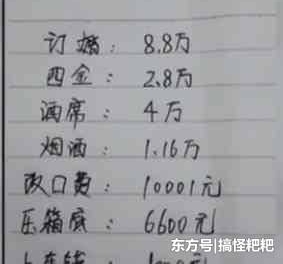 订婚：8.8万
四金：2.8万
酒席：4万
烟酒：1.16万
改口费：10001元
压箱底：6600元
东方号|搞怪粑粑